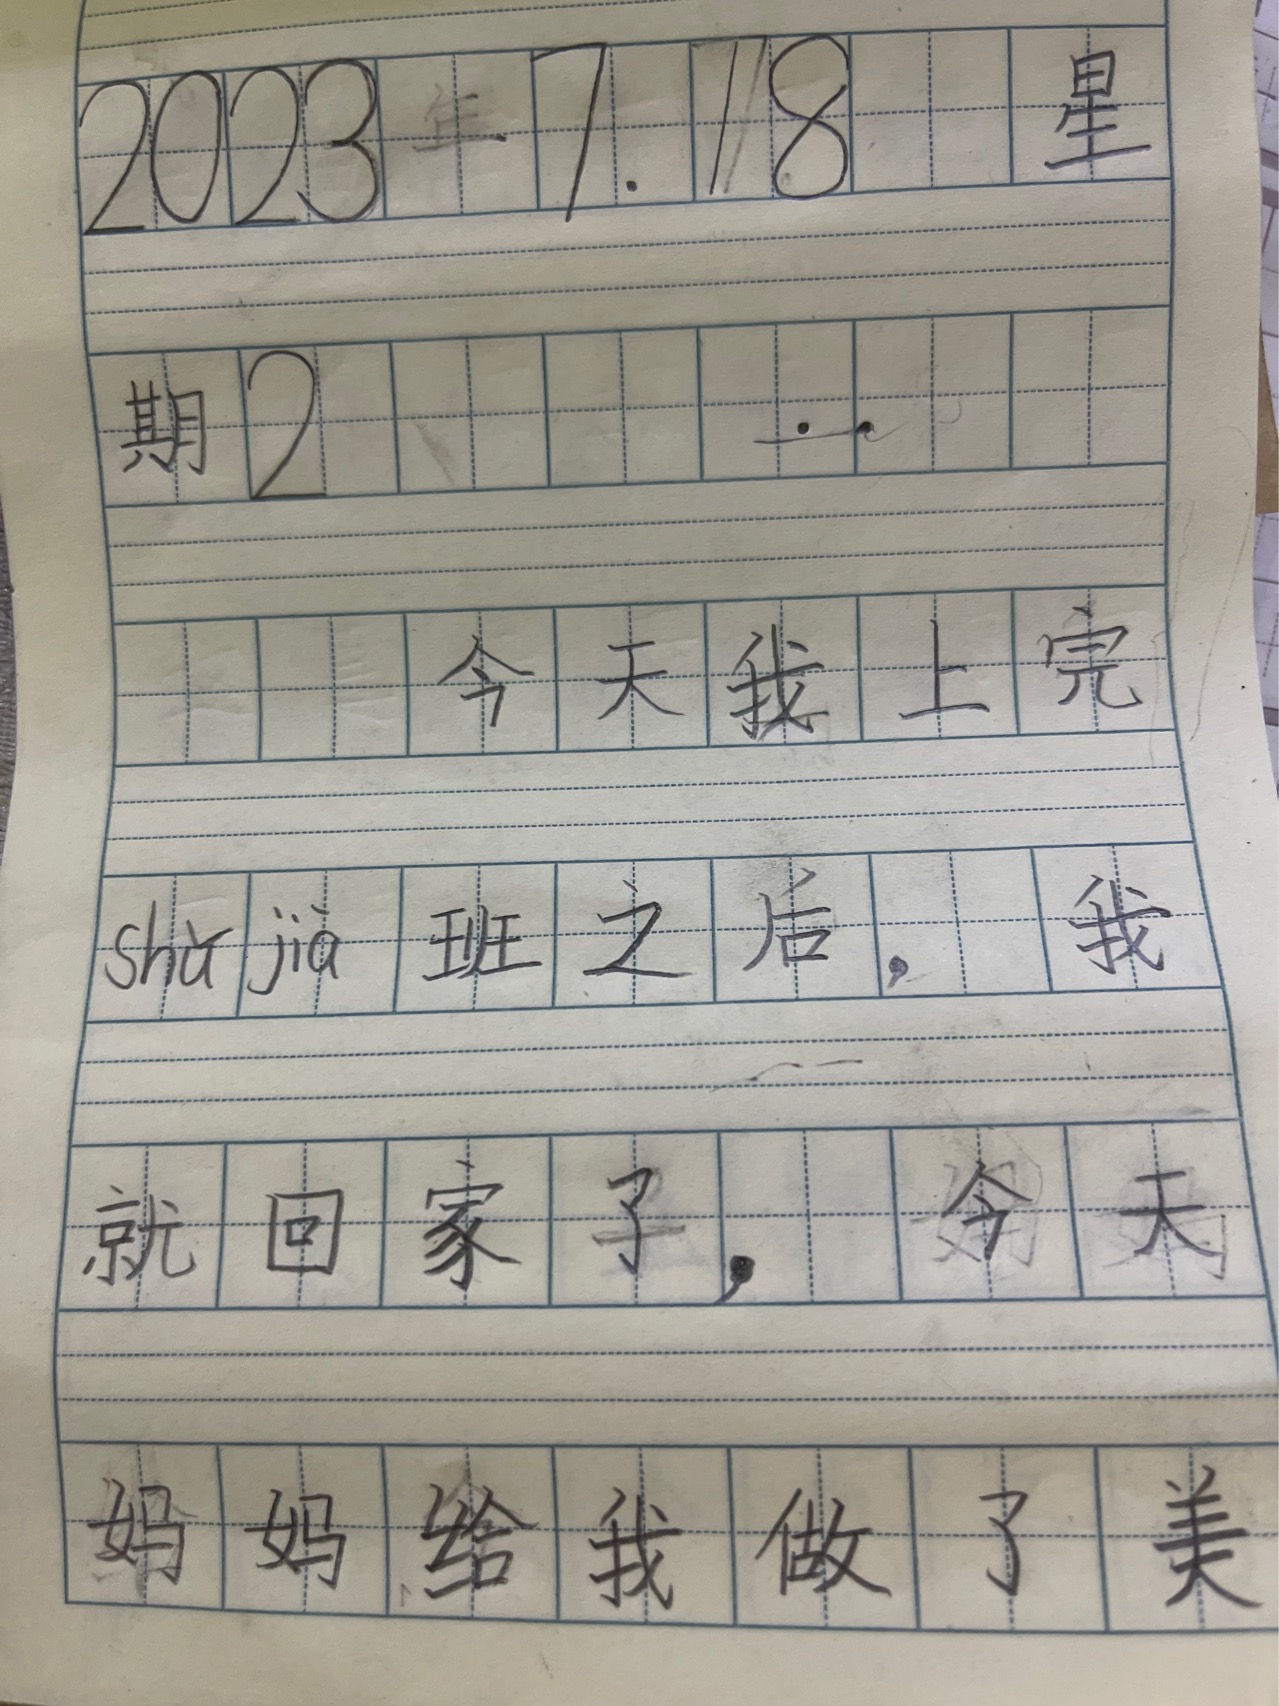 2023年7.18 星
期2
今天我上完
shǔ jià 班之后，我
就回家了，今天
妈妈给我做了美